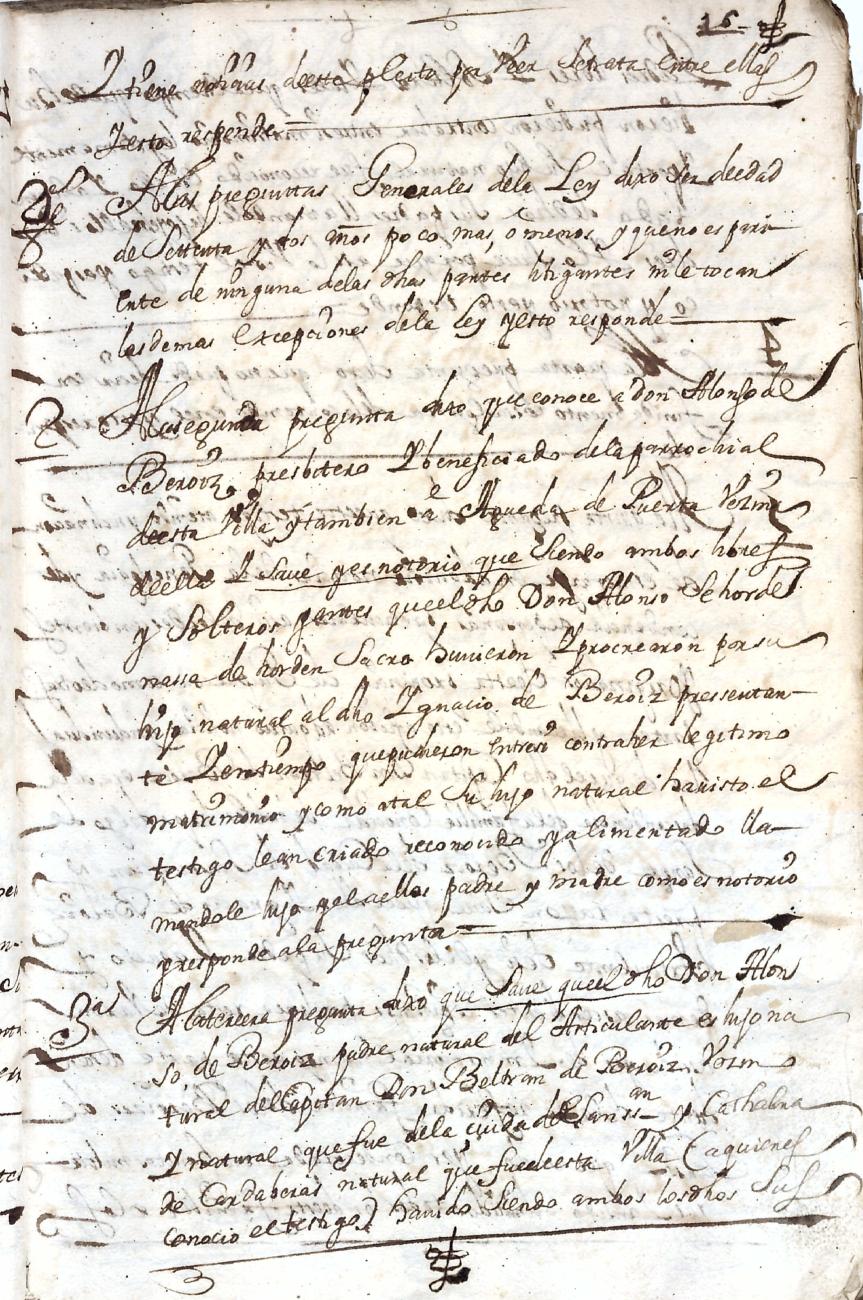 16
Y tiene noticias deeste pleito por Veer Setrata entre ellas
Yesto responde
Gles Alas preguntas Generales dela Ley dixo ser deedad
de Settenta y dos años poco mas, o menos, y queno es pari
ente de ninguna delas dhas partes litigantes nile tocan
las demas excepciones dela Ley yesto responde
2 Alasegunda pregunta dixo que conoce a don Alonso de
Beroiz presbitero Y beneficiado dela parrochial
deesta Villa y tambien a Agueda de Puerta Vezina
deella Y Save yes notorio que Siendo ambos libres
y Solteros y antes queel dho Don Alonso Sehorde
nassa de horden Sacro huuieron Y procrearon por su
hijo natural al dho Ygnacio de Beroiz pressentan
te Y entiempo que pudieron entresi contraher legitimo
matrimonio y como atal Su hijo natural hauisto el
testigo lean criado reconocido y alimentado lla
mandole hijo y el aellos padre y madre como es notorio
y responde ala pregunta
3a Alatercera pregunta dixo que Saue queel dho Don Alon
so de Beroiz padre natural del Articulante es hijo na
tural del Capitan Don Beltran de Beroiz Vezino
Y natural que fue dela ciudad de San ssan y Cathalina
de Cardaberas natural que fue deesta Villa Caquienes
conocio el testigo) hauido Siendo ambos los dhos Sus